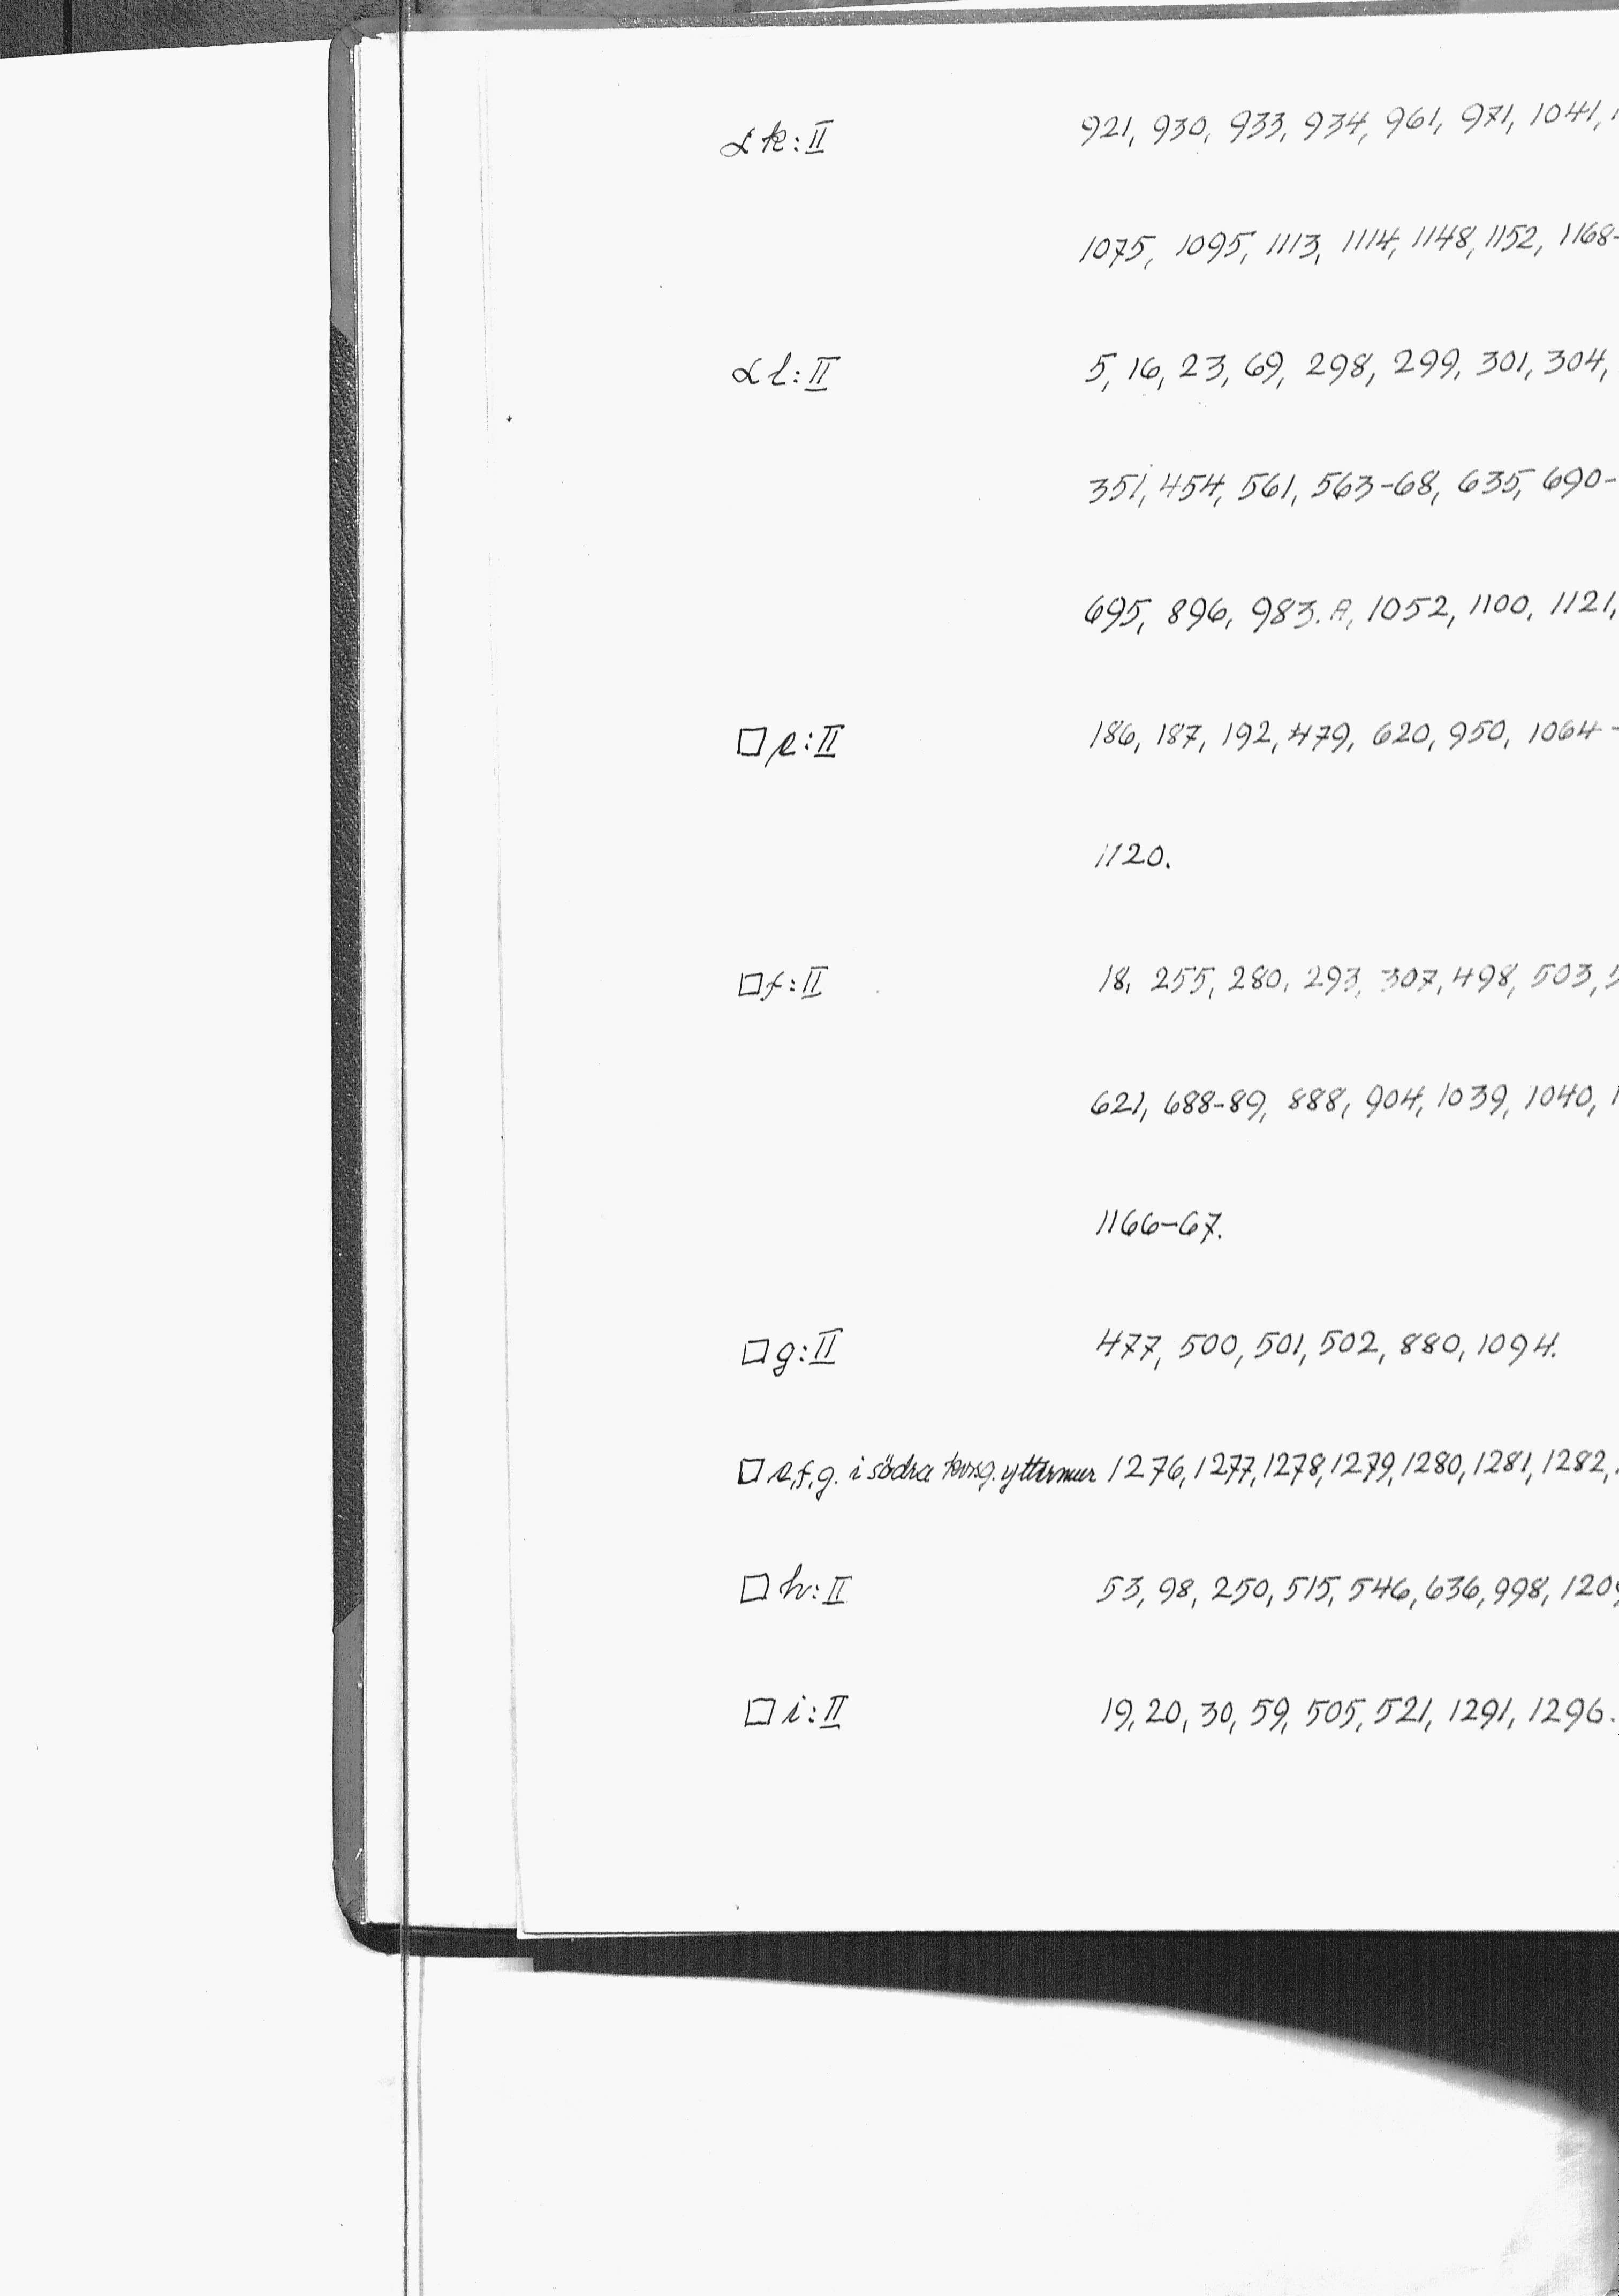 αk:II 921, 930, 933, 934, 961, 971, 1041,
1075, 1095, 1113, 1114, 1148, 1152, 1168-
αl:II 5, 16, 23, 69, 298, 299, 301, 304,
351, 454, 561, 563-68, 635, 690-
695, 896, 983.A, 1052, 1100, 1121,
□e:II 186, 187, 192, 479, 620, 950, 1064-
1120.
□f:II 18, 255, 280, 293, 307, 498, 503,
621, 688-89, 888, 904, 1039, 1040,
1166-67.
□g:II 477, 500, 501, 502, 880, 1094.
□e,f,g. i södra korsg. yttermur 1276, 1277, 1278, 1279, 1280, 1281, 1282,
□h:II 53, 98, 250, 515, 546, 636, 998,
□i:II 19, 20, 30, 59, 505, 521, 1291, 1296.